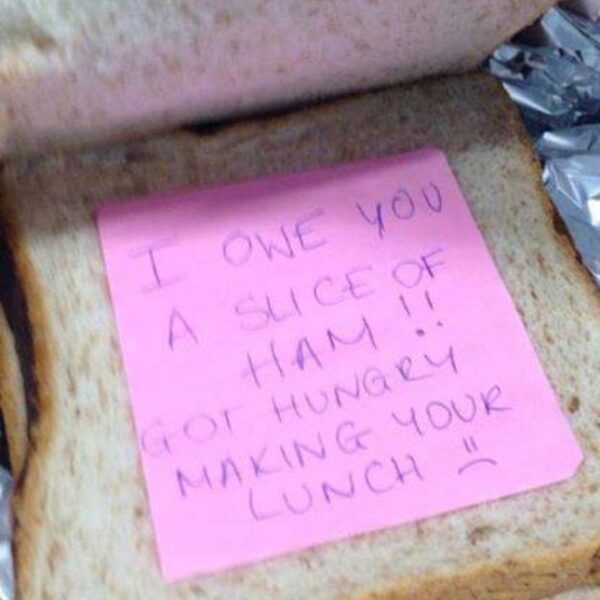 I OWE YOU
A SLICE OF
HAM !!
GOT HUNGRY
MAKING YOUR
LUNCH :(